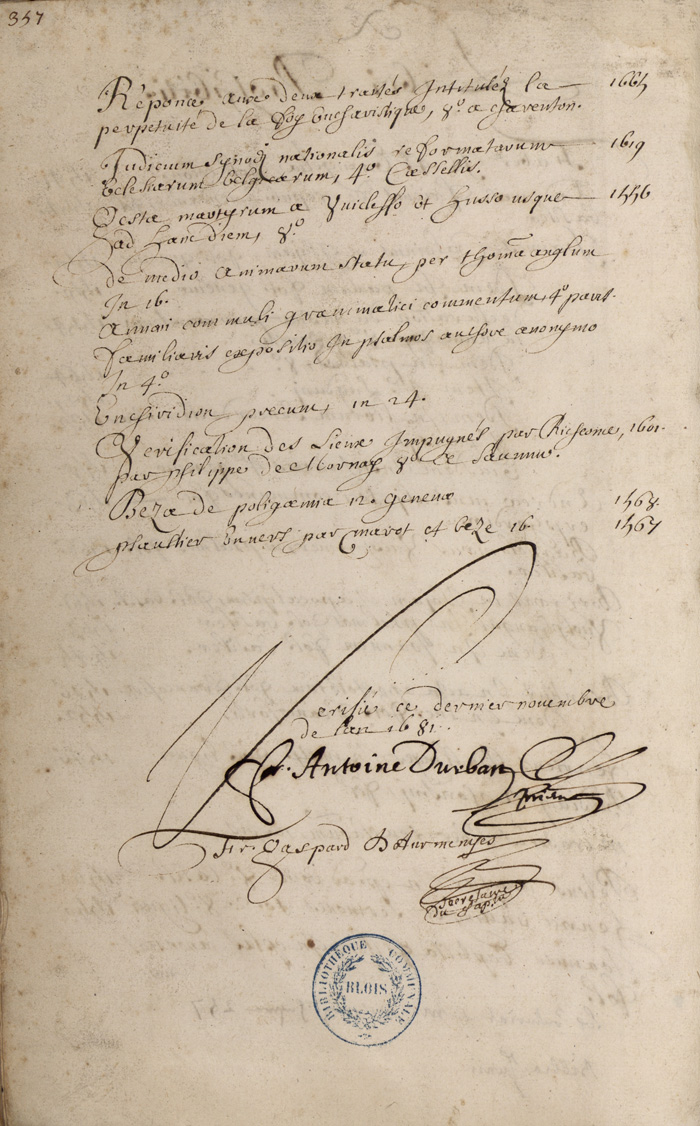 357
Réponce aux deux traités Intitulés la 1665
perpetuité de la foy Eucharistique, 8.º a Charenton.
Judicium synodi nationalis reformatarum 1619
Eclesiarum belgicarum, 4.º
Gesta martyrum a Vuicleffo et Husso usque 1556
ad hanc diem, 8.º
de medio animarum statu, per thomā anglum
In 16.
commentum, 4.º paris.
familiaris expositio In psalmos authore anonymo
In 4.º
Enchiridion precum, in 24.
Verification des Lieux Impugnés par Richeome, 1601.
par philippe de Mornay 8.º a Saumur.
Beza de poligamia 12. genevæ 1568.
psaultier En vers par marot et beze 16. 1567
Verifié ce dernier novembre
de lan 1681.
fr. Antoine Durban
prieur
fr. Gaspard
secretaire
du chapitre
BIBLIOTHÈQUE COMMUNALE
BLOIS